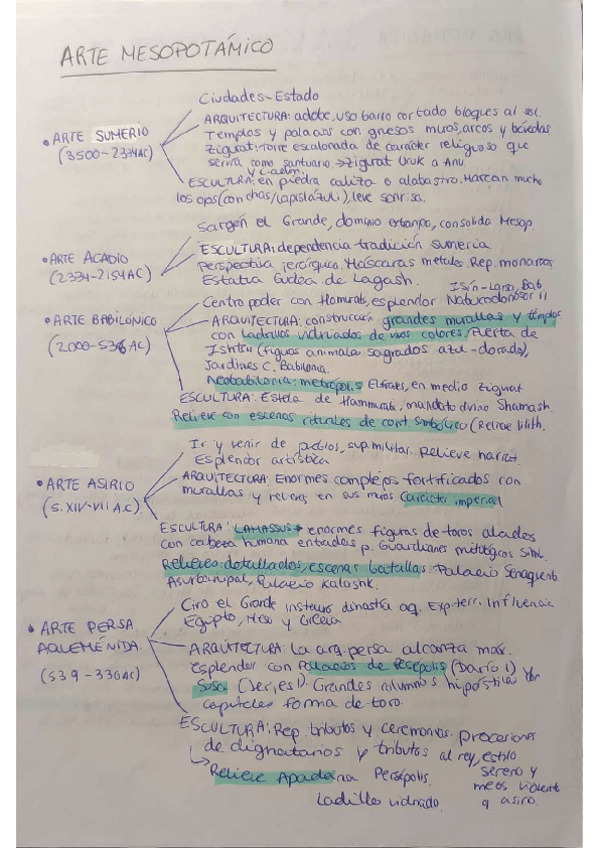 ARTE MESOPOTÁMICO
Ciudades-Estado
• ARTE SUMERIO
(3500-2334AC)
ARQUITECTURA: adobe, uso barro cortado bloques al sol.
Templos y palacios con gruesos muros, arcos y bóvedas
Zigurat: torre escalonada de carácter religioso que
servía como santuario. → Zigurat Uruk a Anu
ESCULTURA: en piedra caliza o alabastro. Marcan mucho
los ojos (conchas/lapislázuli), leve sonrisa.
• ARTE ACADIO
(2334-2154AC)
Sargón el Grande, dominio extenso, consolida Mesop.
ESCULTURA: dependencia tradición sumeria
Perspectiva jerárquica. Máscaras metales. Rep. monarcas
Estatua Gudea de Lagash.
• ARTE BABILÓNICO
(2000-536 AC)
Isin-Larsa, Bab.
Centro poder con Hamurabi, esplendor Nabucodonosor II
ARQUITECTURA: construcción grandes murallas y templos
con ladrillos vidriados de vivos colores. Puerta de
Ishtar (figuas animales sagrados azul-dorado),
Jardines C. Babilonia.
Neobabilonia: metrópolis Eufrates, en medio zigurat
ESCULTURA: Estela de Hammurabi, mandato divino Shamash.
Relieve con escenas rituales de cont. simbólico (Relieve Lilith.
• ARTE ASIRIO
(S. XIV-VII A.C)
Ir y venir de pueblos, sup. militar. Relieve narrat.
Esplendor artística
ARQUITECTURA: Enormes complejos fortificados con
murallas y relieves en sus muros Carácter imperial
ESCULTURA: LAMASSUS → enormes figuras de toros alados
con cabeza humana entradas p. Guardianes mitológicos Siml.
Relieves detallados, escenas batallas: Palacio Senaquerib.
Asurbanipal, Palacio
• ARTE PERSA
AQUEMÉNIDA.
(539-330AC)
Ciro el Grande instauro dinastía aq. Exp. terr. Influencia
Egipto, Meso y Grecia
ARQUITECTURA: La arq. persa alcanza max.
esplendor con Palacios de Persépolis (Darío I) y
Susa (Jerjes I). Grandes columnas hipóstilas
capiteles forma de toro.
ESCULTURA: Rep. tributos y ceremonias. procesiones
de dignatarios y tributos al rey, estilo
sereno y
meos violent
q asiro.
↳ Relieve Apadana Persépolis.
Ladrillo vidriado.